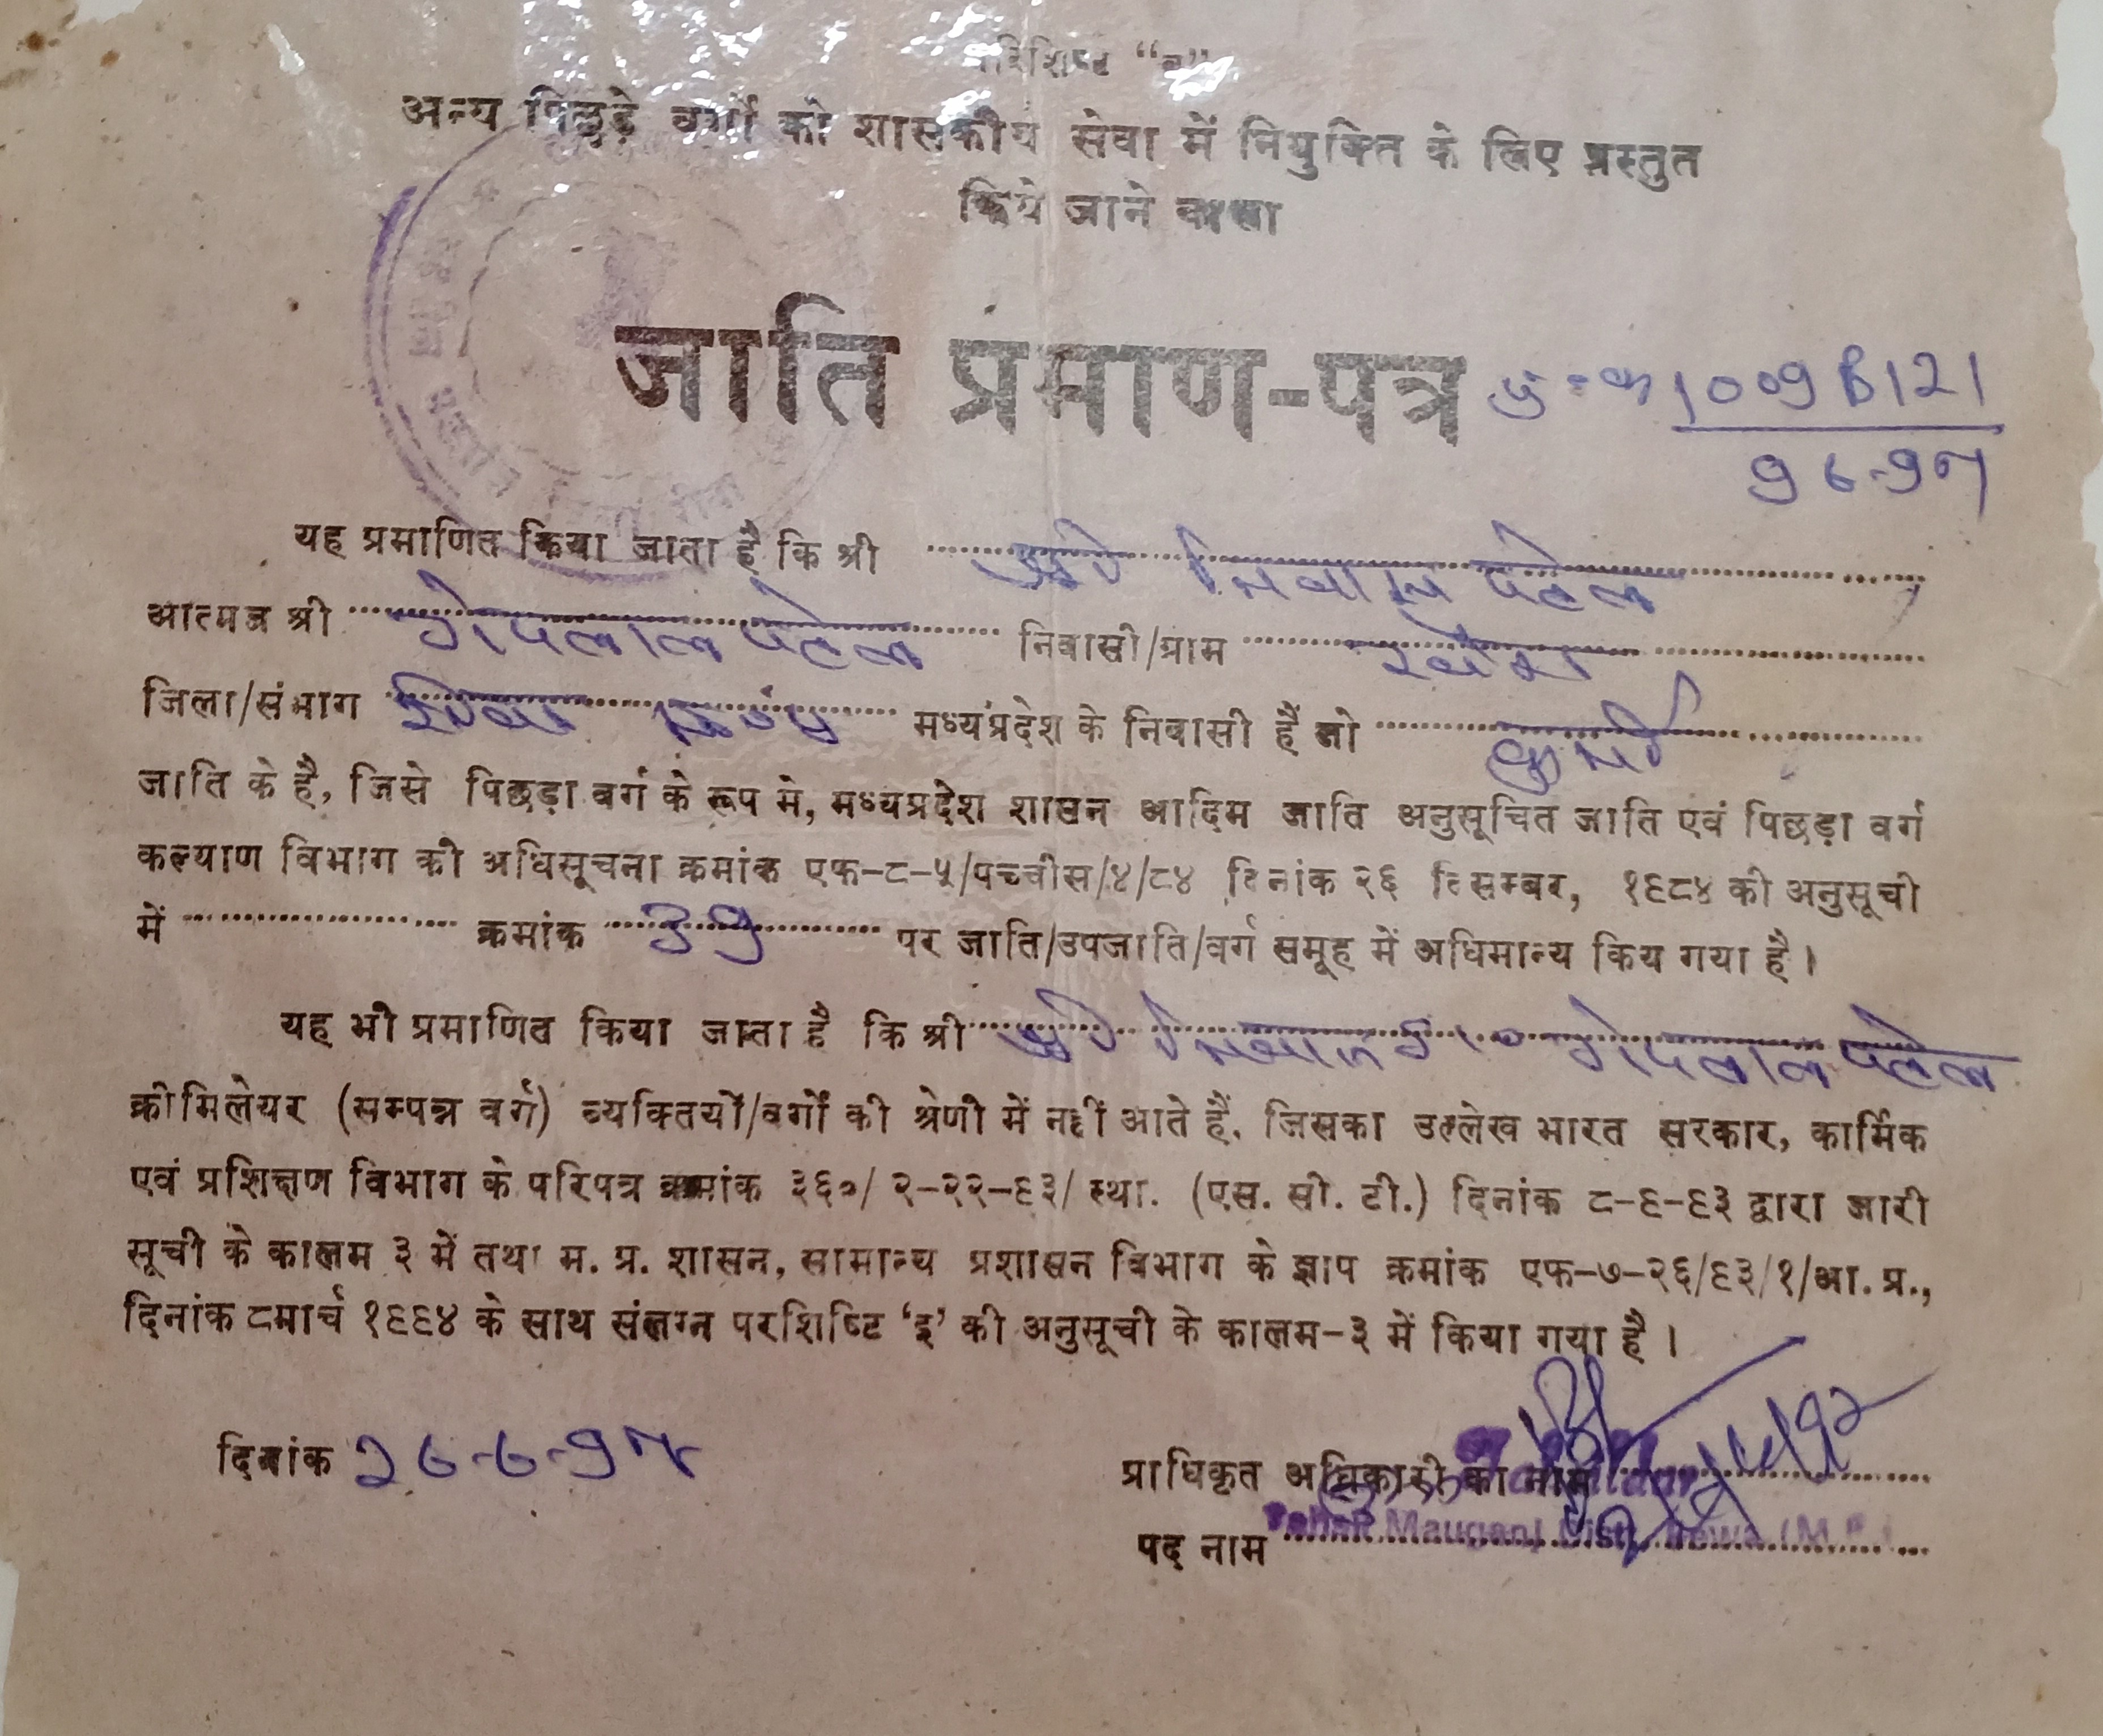 परिशिष्ट “ब”
अन्य पिछड़े वर्गों को शासकीय सेवा में नियुक्ति के लिए प्रस्तुत
किये जाने वाला
जाति प्रमाण-पत्र
1009 B121
96-97
यह प्रमाणित किया जाता है कि श्री पटेल
आत्मज श्री गोपलाल पटेल निवासी/ग्राम
जिला/संभाग रीवा मध्यप्रदेश के निवासी हैं जो कुर्मी
जाति के है, जिसे पिछड़ा वर्ग के रूप मे, मध्यप्रदेश शासन आदिम जाति अनुसूचित जाति एवं पिछड़ा वर्ग
कल्याण विभाग की अधिसूचना क्रमांक एफ-८-५/पच्चीस/४/८४ दिनांक २६ दिसम्बर, १९८४ की अनुसूची
में क्रमांक 39 पर जाति/उपजाति/वर्ग समूह में अधिमान्य किय गया है।
यह भी प्रमाणित किया जाता है कि श्री गोपलाल पटेल
क्रीमिलेयर (सम्पन्न वर्ग) व्यक्तियों/वर्गों की श्रेणी में नहीं आते हैं, जिसका उल्लेख भारत सरकार, कार्मिक
एवं प्रशिक्षण विभाग के परिपत्र क्रमांक ३६०/ २-२२-९३/ स्था. (एस. सी. टी.) दिनांक ८-९-९३ द्वारा जारी
सूची के कालम ३ में तथा म. प्र. शासन, सामान्य प्रशासन विभाग के ज्ञाप क्रमांक एफ-७-२६/९३/१/आ. प्र.,
दिनांक ८मार्च १९९४ के साथ संलग्न परशिष्टि ‘इ’ की अनुसूची के कालम-३ में किया गया है।
दिनांक 26-6-97
प्राधिकृत अधिकारी का नाम
पद नाम Tehsil Mauganj Distt. Rewa (M.P.)